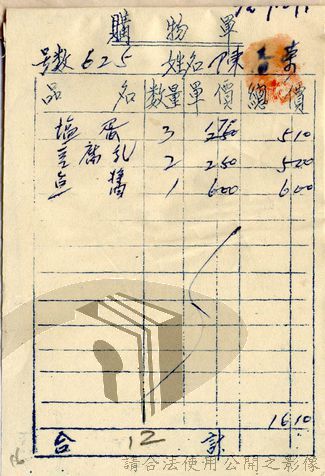 購物單
號數 625 姓名 陳
品名 數量 單價 總價
塩蛋 3 170 510
豆腐乳 2 250 500
豆醬 1 600 600
1610
合計 12
請合法使用公開之影像